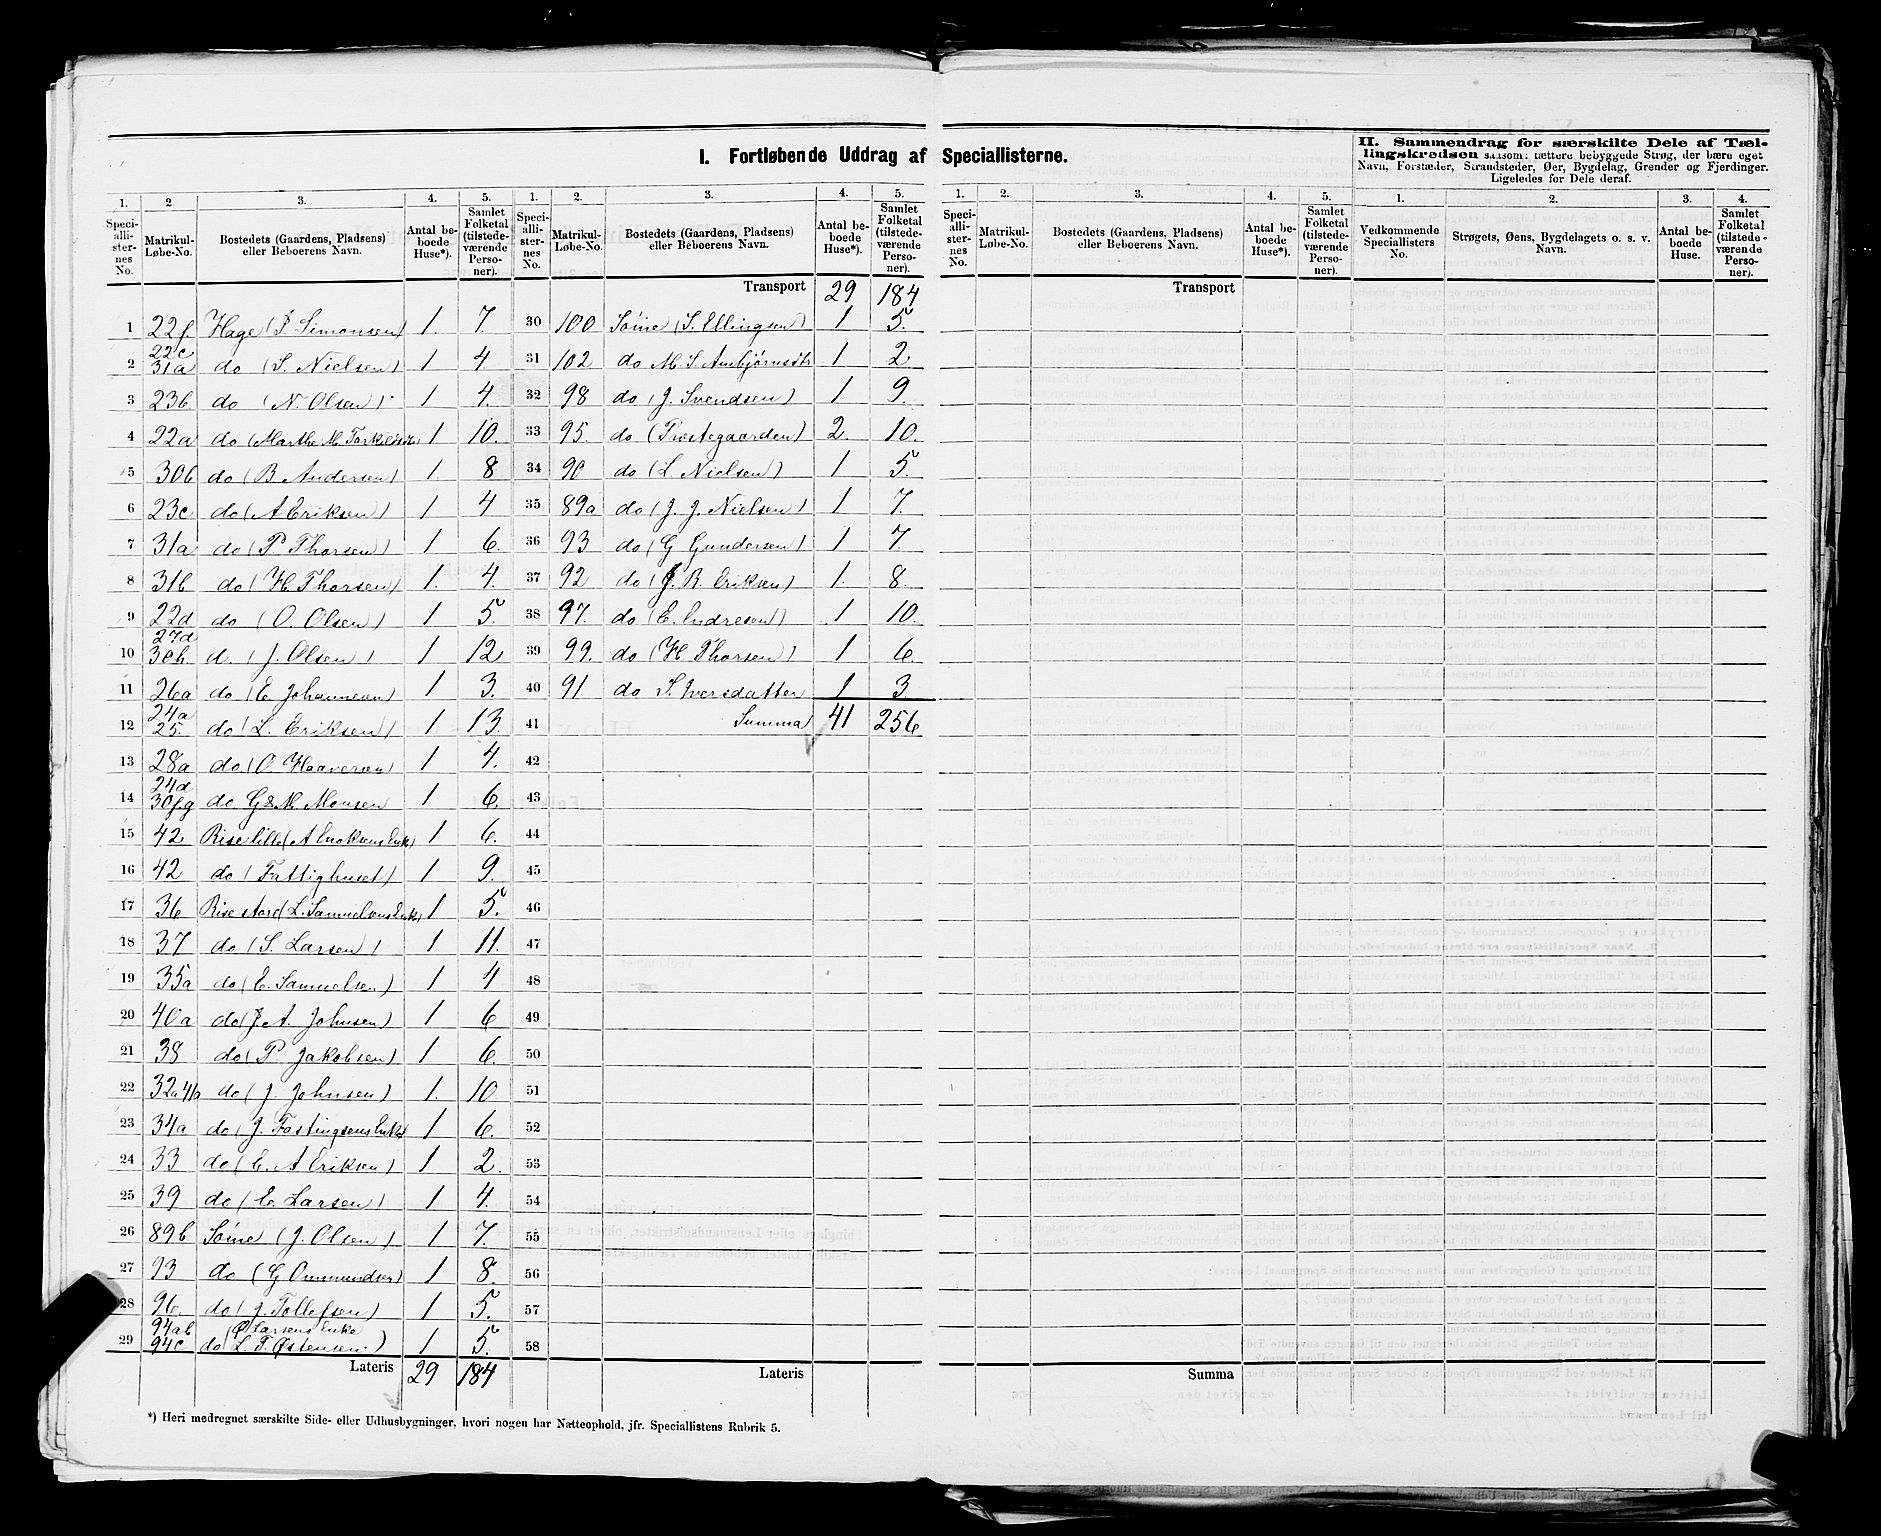 I. Fortløbende Uddrag af Speciallisterne.
II. Sammendrag for særskilte Dele af Tællingskredsen saasom: tættere bebyggede Strøg, der bære eget
Navn, Forstæder, Strandsteder, Øer, Bygdelag, Grender og Fjerdinger.
Ligeledes for Dele deraf.
1. 2 3. 4. 5. 1. 2. 3. 4. 5. 1. 2. 3. 4. 5. 1. 2. 3. 4.
Speciallisternes No. Matrikul-Løbe-No. Bostedets (Gaardens, Pladsens) eller Beboerens Navn. Antal beboede Huse*). Samlet Folketal (tilstedeværende Personer).
Speciallisternes No. Matrikul-Løbe-No. Bostedets (Gaardens, Pladsens) eller Beboerens Navn. Antal beboede Huse*). Samlet Folketal (tilstedeværende Personer).
Speciallisternes No. Matrikul-Løbe-No. Bostedets (Gaardens, Pladsens) eller Beboerens Navn. Antal beboede Huse*). Samlet Folketal (tilstedeværende Personer).
Vedkommende Speciallisters No. Strøgets, Øens, Bygdelagets o. s. v. Navn. Antal beboede Huse. Samlet Folketal (tilstedeværende Personer).
1 22f. Hage (P Simonsen) 1. 7.
2 22c 31a do (S. Nielsen) 1 4
3 23b do (N. Olsen) 1 4.
4 22a do (Marthe M. 1 10.
5 30b do (B Andersen) 1. 8
6 23c do (A Eriksen) 1 4
7 31a do (P. Thorsen) 1 6.
8 31b do (H. Thorsen) 1. 4.
9 22d do (O. Olsen) 1 5.
10 27d 30h d. (J. Olsen) 1 12
11 26a do (E. Johannesen) 1 3.
12 24a 25. do (L. Eriksen) 1 13.
13 28a do. (O. Haaversen) 1 4.
14 24d 30f.g do G & M. Monsen 1 6.
15 42 Rise lille (A Enoksens Enk) 1 6.
16 42 do (Fattighuset) 1 9.
17 36 Rise stor (L. Samuelsens Enk) 1 5.
18 37 do (S. Larsen) 1 11.
19 35a do (E. Samuelsen) 1 4
20 40a do (J. A. Johnsen) 1 6
21 38 do (P. Jakobsen) 1 6.
22 32a 41a do (J. Johnsen) 1. 10
23 34a do (J. Fastingsens Enke) 1 6.
24 33 do (E. A. Eriksen) 1 2.
25 39 do (E. Larsen) 1 4.
26 89b Søine (J. Olsen) 1 7.
27 93 do (G Ommundsen) 1 8.
28 96 do (J. Tollefsen) 1 5.
29 94ab 94c do (O Larsens Enke L. T. Østensen.) 1 5.
Lateris 29 184
Transport 29 184
30 100 Søine (S. Ellingsen) 1 5.
31 102 do M. S. Ambjørnsdtr 1 2
32 98 do (J. Svendsen) 1 9.
33 95. do (Præstegaarden) 2. 10.
34 90 do (L Nielsen) 1 5.
35 89a do (J. J. Nielsen) 1 7.
36 93 do (G Gundersen) 1 7.
37 92 do (J. B. Eriksen) 1. 8.
38 97. do (E. Endresen) 1 10.
39 99. do (H. Thorsen) 1 6.
40 91 do S. Iversdatter 1 3
41 Summa 41 256
42
43
44
45
46
47
48
49
50
51
52
53
54
55
56
57
58
Lateris
Transport
Summa
*) Heri medregnet særskilte Side- eller Udhusbygninger, hvori nogen har Natteophold, jfr. Speciallistens Rubrik 5.